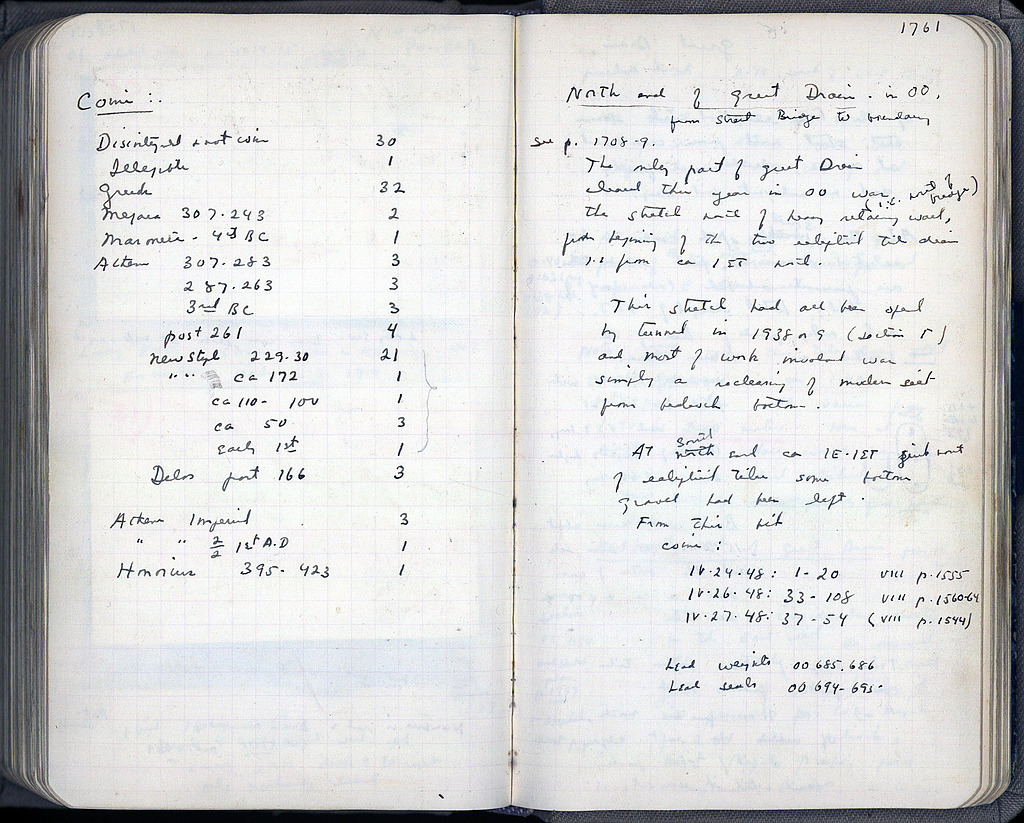 Coins :.
Disintegrated & not coin 30
Illegible 1
Greek 32
Megara 307-243 2
Maroneia - 4th BC 1
Athens 307-283 3
287-263 3
3rd BC 3
post 261 4
New Style 229-30 21
" " ca 172 1
ca 110- 100 1
ca 50 3
early 1st 1
Delos post 166 3
Athens Imperial 3
" " 2/2 1st A.D 1
Honorius 395- 423 1
1761
North end of Great Drain. in OO,
from street Bridge to boundary
See p. 1708-9.
The only part of great Drain
cleared this year in OO was
(i.e. north of bridge)
the stretch north of heavy retaining wall,
from beginning of the two elliptical tile drain
i.e from ca 1 ΣΤ north.
This stretch had all been opened
by tunnel in 1938 or 9 (section Γ)
and most of work involved was
simply a recleaning of modern silt
from bedrock bottom.
south
At north end ca 1E-1ΣΤ just north
of elliptical tiles some bottom
gravel had been left.
From this bit
coins:
IV-24-48: 1-20 VIII p.1555
IV-26-48: 33-108 VIII p.1560-64
IV-27-48: 37-54 (VIII p.1544)
Lead weights OO 685, 686
Lead seals OO 694-695-